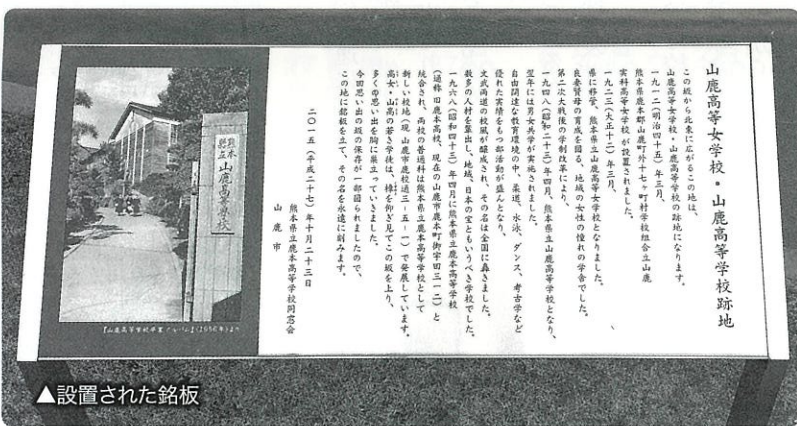 山鹿高等女学校・山鹿高等学校跡地
この坂から北東に広がるこの地は、
山鹿高等女学校・山鹿高等学校の跡地になります。
一九一二(明治四十五)年三月、
熊本県鹿本郡山鹿町外十七ヶ町村学校組合立山鹿
実科高等女学校が設置されました。
一九二三(大正十二)年三月、
県に移管、熊本県立山鹿高等女学校となりました。
良妻賢母の育成を図る、地域の女性の憧れの学舎でした。
第二次大戦後の学制改革により、
一九四八(昭和二十三)年四月、熊本県立山鹿高等学校となり、
翌年には男女共学が実施されました。
自由闊達な教育環境の中、柔道、水泳、ダンス、考古学など
優れた実績をもつ部活動が盛んとなり、
文武両道の校風が醸成され、その名は全国に轟きました。
数多の人材を輩出し、地域、日本の宝ともいうべき学校でした。
一九六八(昭和四十三)年四月に熊本県立鹿本高等学校
(通称旧鹿本高校、現在の山鹿市鹿本町御宇田三一二)と
統合され、両校の普通科は熊本県立鹿本高等学校として
新しい校地(現 山鹿市鹿校通三-五-一)で発展しています。
高女・山高の若き学徒は、樟を仰ぎ見てこの坂を上り、
多くの思い出を胸に巣立っていきました。
今回思い出の坂の保存が一部図られましたので、
この地に銘板を立て、その名を永遠に刻みます。
二〇一五(平成二十七)年十月二十三日
熊本県立鹿本高等学校同窓会
山鹿市
熊本県立山鹿高等学校
『山鹿高等学校卒業アルバム』(1956年)より
▲設置された銘板